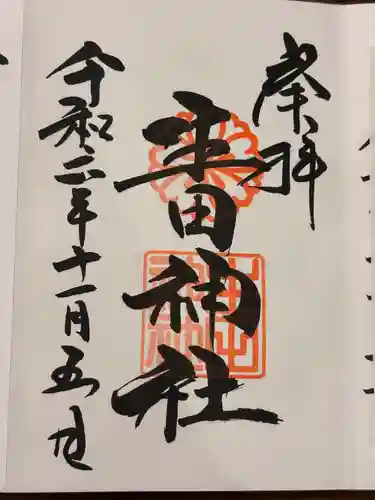 奉拝
生田神社
令和二年十一月五日